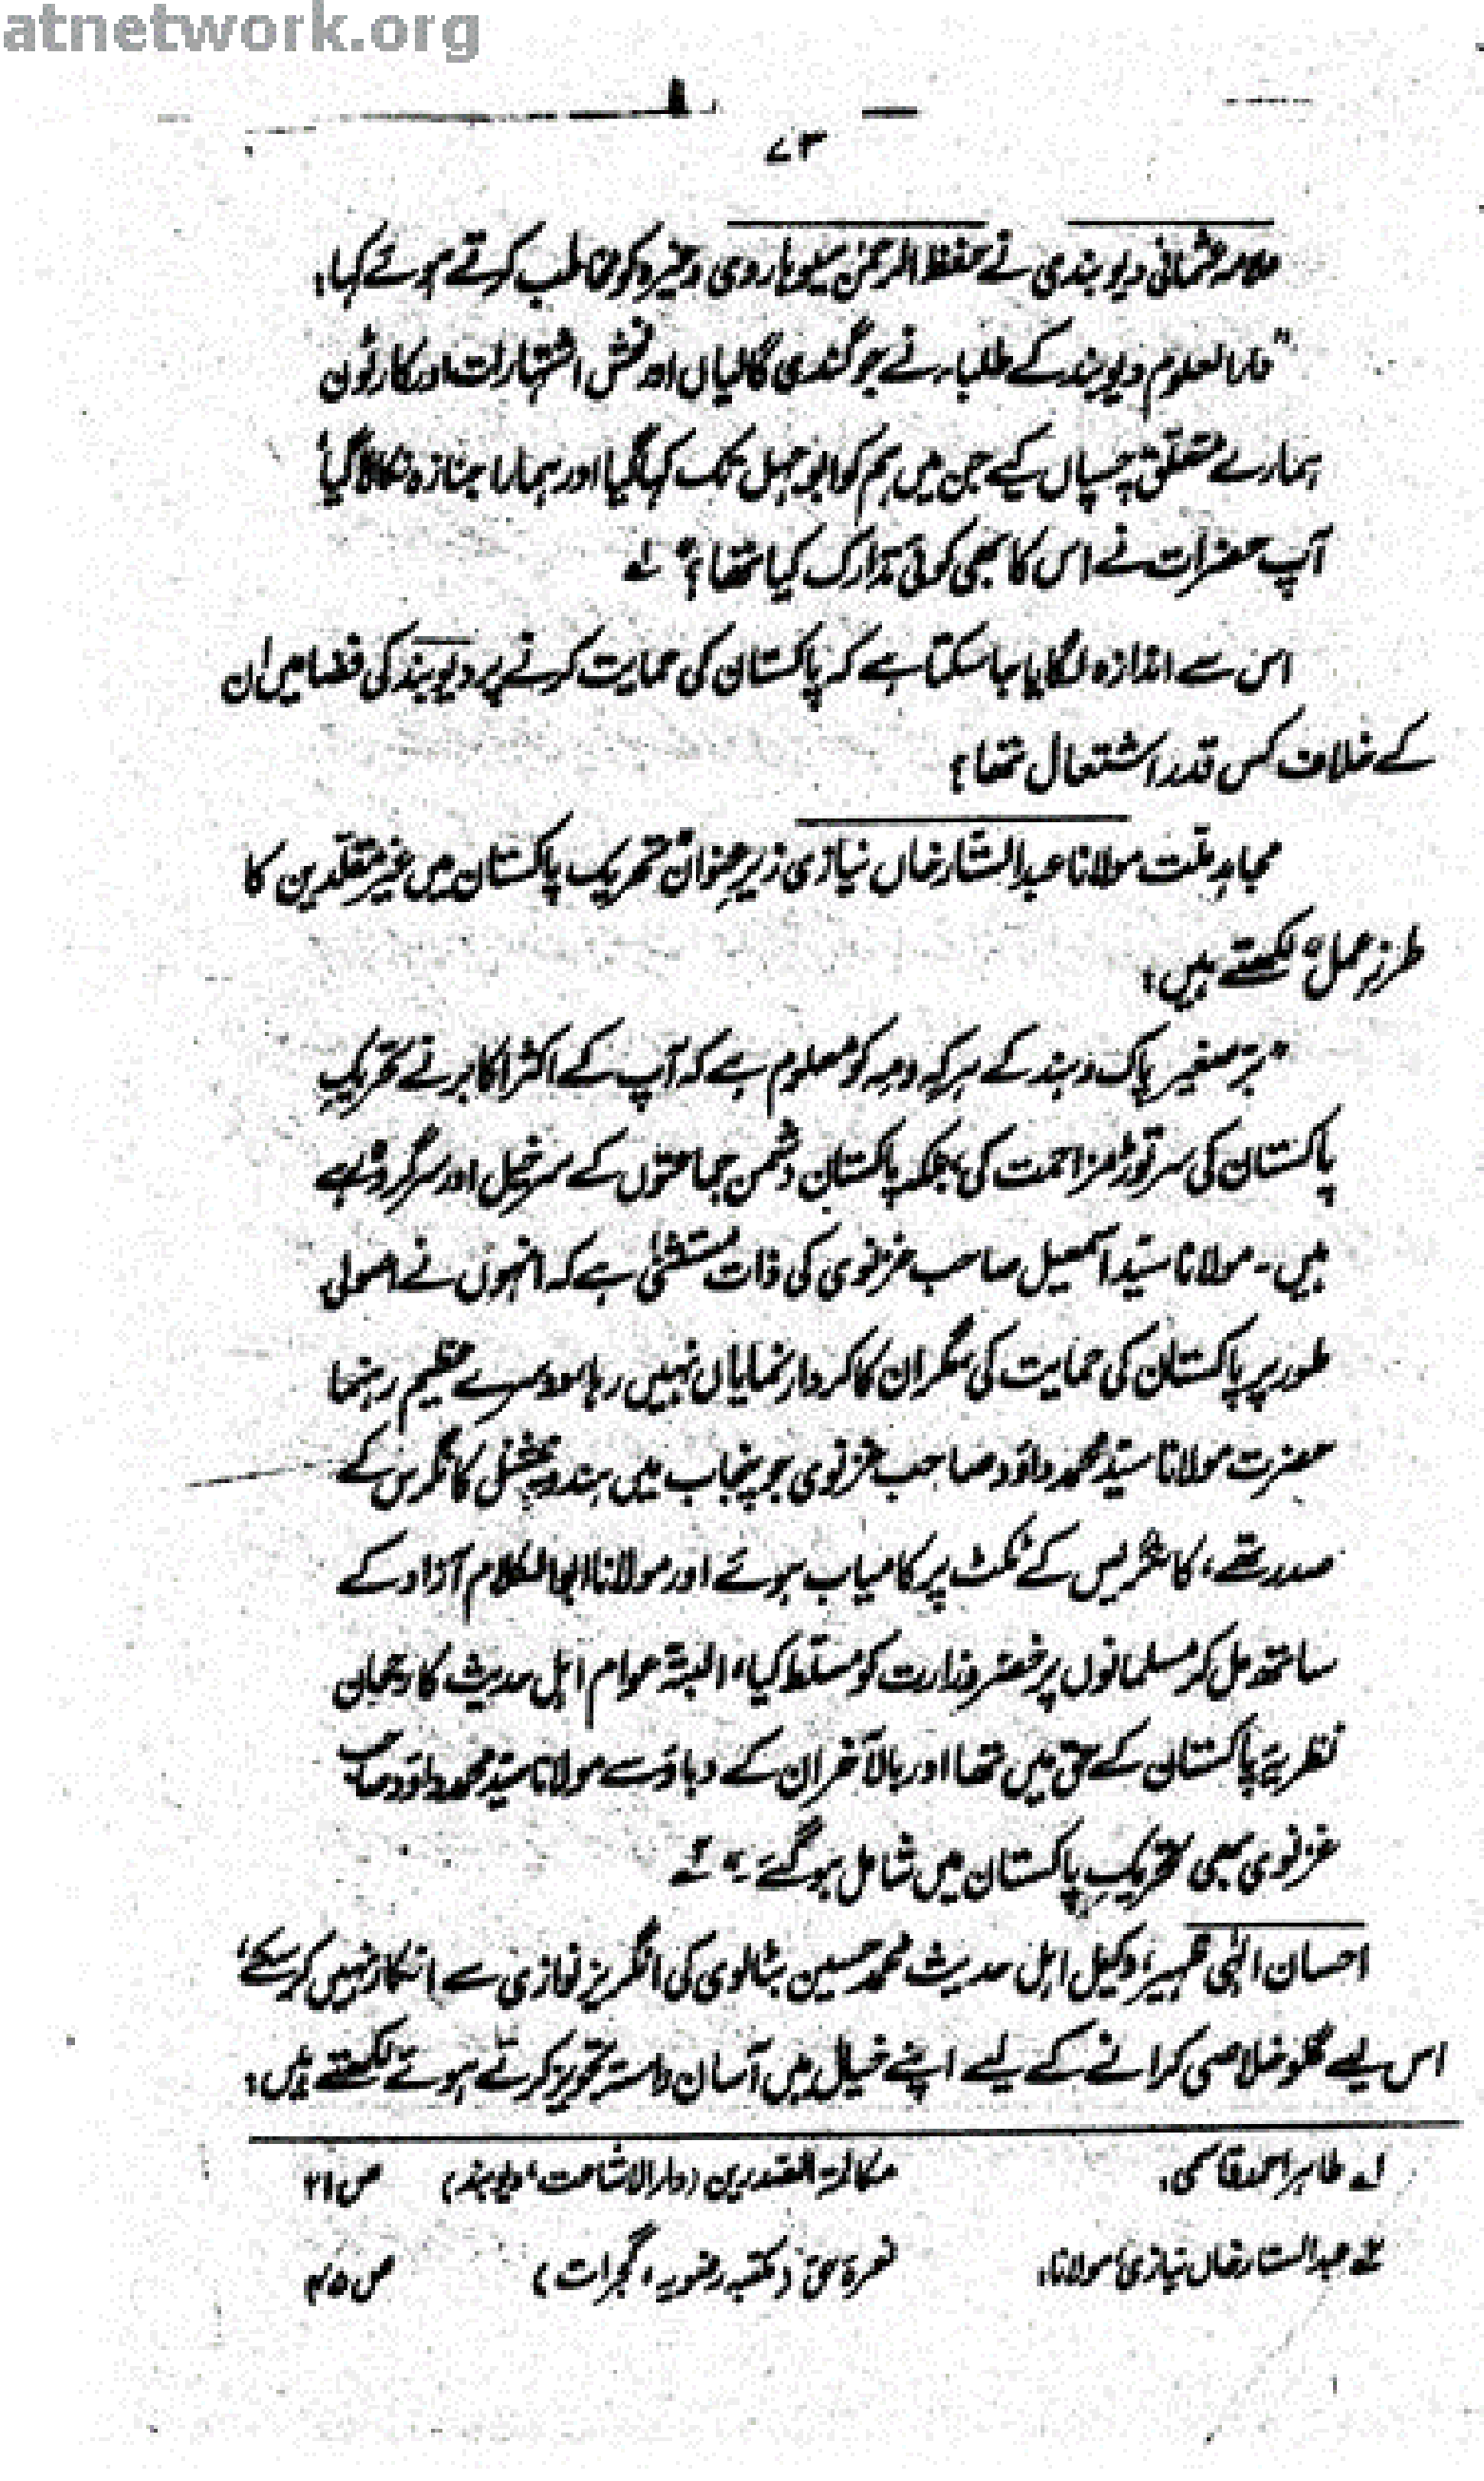 atnetwork.org
۷۳
علامہ عثمانی دیوبندی نے حفظ الرحمٰن سیوہاروی وغیرہ کو مخاطب کرتے ہوئے کہا:
"دارالعلوم دیوبند کے طلباء نے جو گندی گالیاں اور فحش اشتہارات اور کارٹون
ہمارے متعلق چسپاں کیے جن میں ہم کو ابوجہل تک کہا گیا اور ہمارا جنازہ نکالا گیا
آپ حضرات نے اس کا بھی کوئی تدارک کیا تھا؟" لہ
اس سے اندازہ لگایا جا سکتا ہے کہ پاکستان کی حمایت کرنے پر دیوبند کی فضا میں ان
کے خلاف کس قدر اشتعال تھا؟
مجاہدِ ملت مولانا عبدالستار خاں نیازی زیرِ عنوان "تحریک پاکستان میں غیر مقلدین کا
طرزِ عمل" لکھتے ہیں:
"برصغیر پاک و ہند کے ہر کہ و مہ کو معلوم ہے کہ آپ کے اکثر اکابر نے تحریکِ
پاکستان کی سر توڑ مزاحمت کی، بلکہ پاکستان دشمن جماعتوں کے سرخیل اور سرگروہ رہے
ہیں۔ مولانا سید اسمٰعیل صاحب غزنوی کی ذات مستثنیٰ ہے کہ انہوں نے اصولی
طور پر پاکستان کی حمایت کی مگر ان کا کردار نمایاں نہیں رہا، دوسرے عظیم رہنما
حضرت مولانا سید محمد داؤد صاحب غزنوی جو پنجاب میں ہندو نیشنل کانگرس کے
صدر تھے، کانگریس کے ٹکٹ پر کامیاب ہوئے اور مولانا ابوالکلام آزاد کے
ساتھ مل کر مسلمانوں پر خضر وزارت کو مسلط کیا، البتہ عوام اہل حدیث کا رجحان
نظریۂ پاکستان کے حق میں تھا اور بالآخر ان کے دباؤ سے مولانا سید محمد داؤد صاحب
غزنوی بھی تحریکِ پاکستان میں شامل ہو گئے۔" ۲ہ
احسان الٰہی ظہیر، وکیل اہل حدیث محمد حسین بٹالوی کی انگریز نوازی سے انکار نہیں کر سکے،
اس لیے گلو خلاصی کرانے کے لیے اپنے خیال میں آسان راستہ تجویز کرتے ہوئے لکھتے ہیں:
لہ طاہر احمد قاسمی، مکالمۃ الصدرین (دارالاشاعت، دیوبند) ص ۲۱
۲ہ عبدالستار خاں نیازی، مولانا، نعرۂ حق (مکتبہ رضویہ، گجرات) ص ۴۵